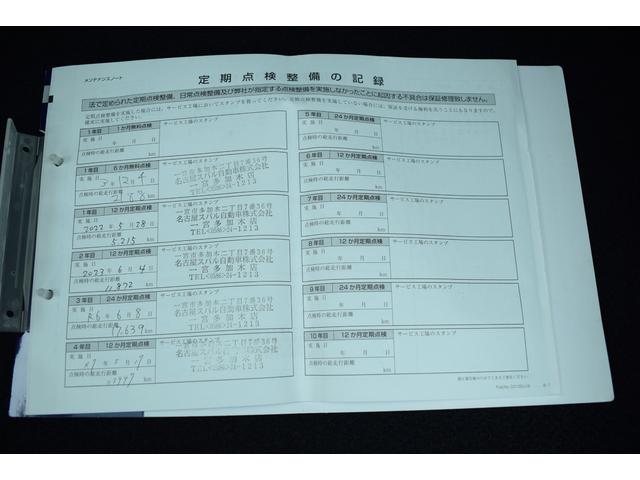 メンテナンスノート
定期点検整備の記録
法で定められた定期点検整備、日常点検整備及び弊社が指定する点検整備を実施しなかったことに起因する不具合は保証修理致しません。
1年目 1か月無料点検 サービス工場のスタンプ
実施日
年 月 日
点検時の総走行距離
km
1年目 6か月無料点検 サービス工場のスタンプ
実施日
3年 12月 4日
点検時の総走行距離
km
一宮市多加木二丁目7番36号
名古屋スバル自動車株式会社
一宮多加木店
TEL<0586>24-1213
1年目 12か月定期点検 サービス工場のスタンプ
実施日
2022年 5月 28日
点検時の総走行距離
5,215 km
一宮市多加木二丁目7番36号
名古屋スバル自動車株式会社
一宮多加木店
TEL<0586>24-1213
2年目 12か月定期点検 サービス工場のスタンプ
実施日
2023年 6月 4日
点検時の総走行距離
11,872 km
一宮市多加木二丁目7番36号
名古屋スバル自動車株式会社
一宮多加木店
TEL<0586>24-1213
3年目 24か月定期点検 サービス工場のスタンプ
実施日
R6年 6月 8日
点検時の総走行距離
17,639 km
一宮市多加木二丁目7番36号
名古屋スバル自動車株式会社
一宮多加木店
TEL<0586>24-1213
4年目 12か月定期点検 サービス工場のスタンプ
実施日
R7年 5月 17日
点検時の総走行距離
km
一宮市多加木二丁目7番36号
名古屋スバル自動車株式会社
一宮多加木店
TEL<0586>24-1213
5年目 24か月定期点検 サービス工場のスタンプ
実施日
年 月 日
点検時の総走行距離
km
6年目 12か月定期点検 サービス工場のスタンプ
実施日
年 月 日
点検時の総走行距離
km
7年目 24か月定期点検 サービス工場のスタンプ
実施日
年 月 日
点検時の総走行距離
km
8年目 12か月定期点検 サービス工場のスタンプ
実施日
年 月 日
点検時の総走行距離
km
9年目 24か月定期点検 サービス工場のスタンプ
実施日
年 月 日
点検時の総走行距離
km
10年目 12か月定期点検 サービス工場のスタンプ
実施日
年 月 日
点検時の総走行距離
km